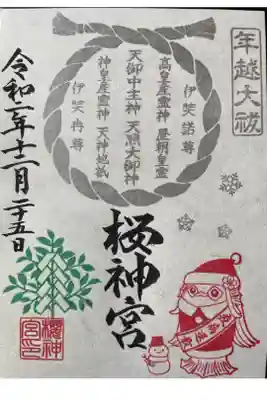 年越大祓
伊奘諾尊
高皇産霊神 歴朝皇霊
天御中主神 天照大御神
神皇産霊神 天神地祇
伊奘冉尊
令和二年十二月二十五日
桜神宮
櫻神宮印